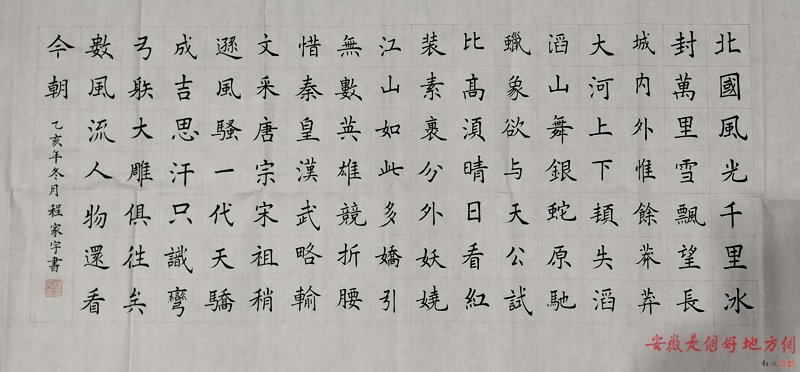 北國風光千里冰
封萬里雪飄望長
城内外惟餘莽莽
大河上下頓失滔
滔山舞銀蛇原馳
蠟象欲与天公試
比高須晴日看紅
装素裹分外妖嬈
江山如此多嬌引
無數英雄競折腰
惜秦皇漢武略輸
文采唐宗宋祖稍
遜風騷一代天驕
成吉思汗只識彎
弓䠶大雕俱往矣
數風流人物還看
今朝
乙亥年冬月程家宇書
安徽是個好地方網